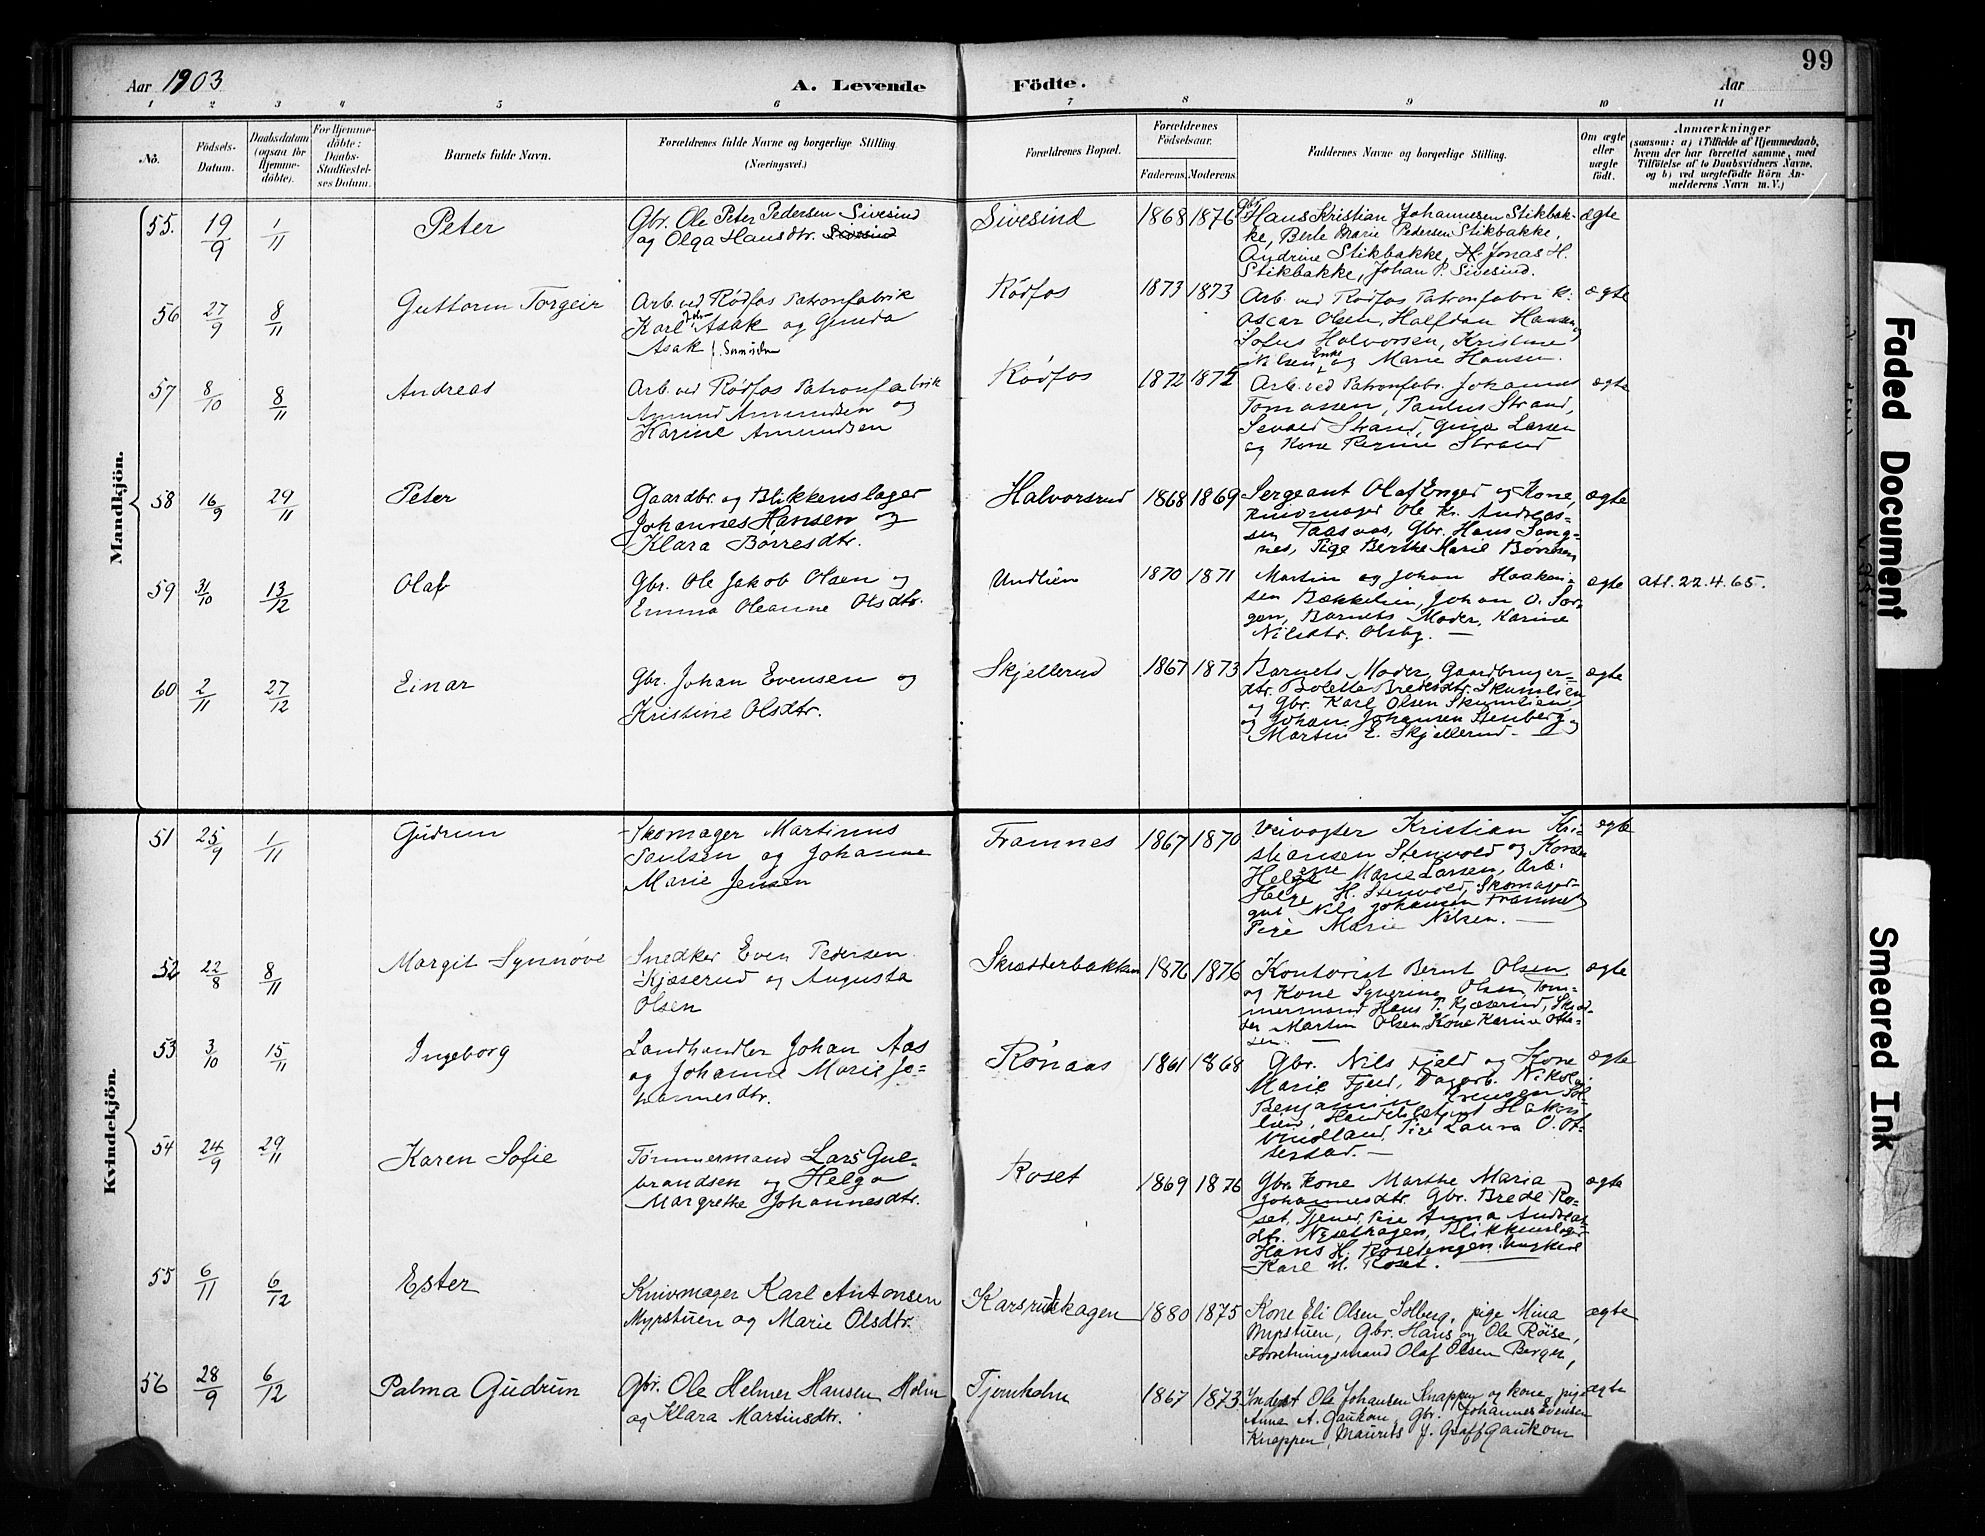 99
Aar 1903 A. Levende Födte. Aar
1 2 3 4 5 6 7 8 9 10 11
No. Födsels-Datum. Daabsdatum (ogsaa for Hjemme-döbte). For Hjemme-döbte: Daabs-Stadfæstel-ses Datum. Barnets fulde Navn. Forældrenes fulde Navne og borgerlige Stilling. (Næringsvei.) Forældrenes Bopæl. Forældrenes Födselsaar. Faderens. Moderens. Faddernes Navne og borgerlige Stilling. Om ægte eller uægte födt. Anmærkninger (saasom: a) i Tilfælde af Hjemmedaab, hvem der har forrettet samme, med Tilföielse af to Daabsvidners Navne, og b) ved uægtefödte Börn An-melderens Navn m. V.)
Mandkjön.
55. 19/9 1/11 Peter Gbr. Ole Peter Pedersen Sivesind Sivesind 1868 1876 Gbr Hans Kristian Johannesen Stikbak- ægte
og Olga Hansdtr. Sivesind ke, Berte Marie Pedersen Stikbakke,
Andrine Stikbakke, H. Jonas H.
Stikbakke, Johan P. Sivesind.
56 27/9 8/11 Guttorm Torgeir Arb. ved Rødfos Patronfabrik Rødfos 1873 1873 Arb. ved Rødfos Patronfabrik. ægte
Karl Joh. Asak og Gunda Oscar Olsen, Halfdan Hansen,
Asak Sofus Halvorsen, Kristine
Nilsen, Enke og Marie Hansen.
57 8/10 8/11 Andreas Arb. ved Rødfos Patronfabrik Rødfos 1872 1875 Arb. ved Patronfabr. Johannes ægte
Amund Amundsen og Tomassen, Paulus Strand,
Karine Amundsen Sevald Strand, Gina Larsen
og Kone Perine Strand
58 16/9 29/11 Peter Gaardbr. og Blikkenslager Halvorsrud 1868 1869 Sergeant Olaf Enger og Kone, ægte
Johannes Hansen og Knivmager Ole Kr. Andreas-
Klara Børresdtr. sen Taasaas, Gbr. Hans Sang-
nes, Pige Berthe Marie Borresen
59 31/10 13/12 Olaf Gbr. Ole Jakob Olsen og Undlien 1870 1871 Martin og Johan Haaken- ægte att. 22.4.65.
Emma Oleanne Olsdtr. sen Bækkelien, Johan O. Sor-
gen, Barnets Moder, Karine
Nilsdtr. Olsby. —
60 2/11 27/12 Einar Gbr. Johan Evensen og Skjellerud 1867 1873 Barnets Moder, Gaardbruger- ægte
Kristine Olsdtr. dtr. Bolette Bredesdtr. Skumlien
og Gbr. Karl Olsen Skumlien,
og Johan Johansen Stenberg og
Martin E. Skjellerud. —
Kvindekjön.
51 25/9 1/11 Gudrun Skomager Martinus Framnes 1867 1870 Veivogter Kristian Kri- ægte
Paulsen og Johanne stiansen Stenvold og Kone
Marie Jensen Helene Marie Larsen, Arb.
Helge H. Stenvold, Skomager-
gut Nils Johansen Framnes
Pige Marie Nilsen. —
52 22/8 8/11 Margit Synnøve Snedker Even Pedersen Skrædderbakken 1876 1876 Kontorist Bernt Olsen ægte
Kjæserud og Augusta og Kone Syverine Olsen, Tøm-
Olsen mermand Hans P. Kjæserud, Skræd-
der Martin Olsen, Kone Karine Otte-
sen. —
53 3/10 15/11 Ingeborg Landhandler Johan Aas Rønaas 1861 1868 Gbr. Nils Fjeld og Kone ægte
og Johanne Marie Jo- Marie Fjeld, Dagarb. Nikolai
hannesdtr. Benjamin Hansen Sol-
lien, Handelsbetjent Hakon
Vindland, Pige Laura O. Ot-
terstad. —
54 24/9 29/11 Karen Sofie Tømmermand Lars Gul- Roset 1869 1876 Gbr. Kone Marthe Maria ægte
brandsen og Helga Johannesdtr. Gbr. Brede Ro-
Margrethe Johannesdtr. set, Tjener, Pige Anna Andreas-
dtr. Nysethagen, Blikkenslager
Hans H. Rosetengen, Ungkarl
Karl M. Roset.
55 6/11 6/12 Ester Knivmager Karl Antonsen Karsrudhagen 1880 1875 Kone Eli Olsen Solberg, pige Mina ægte
Myrstuen og Marie Olsdtr. Myrstuen, Gbr. Hans og Ole Røise,
Forretningsmand Olaf Olsen Bergen,
56 28/9 6/12 Palma Gudrun Gbr. Ole Helmer Hansen Holm Tjernholm 1867 1873 Inderst Ole Johansen Knappen og kone, pige ægte
og Klara Martinsdtr. Anne A. Gaukom, Gbr. Johannes Evensen
Knappen, Maurits J. Graff Gaukom
Faded Document
Smeared Ink